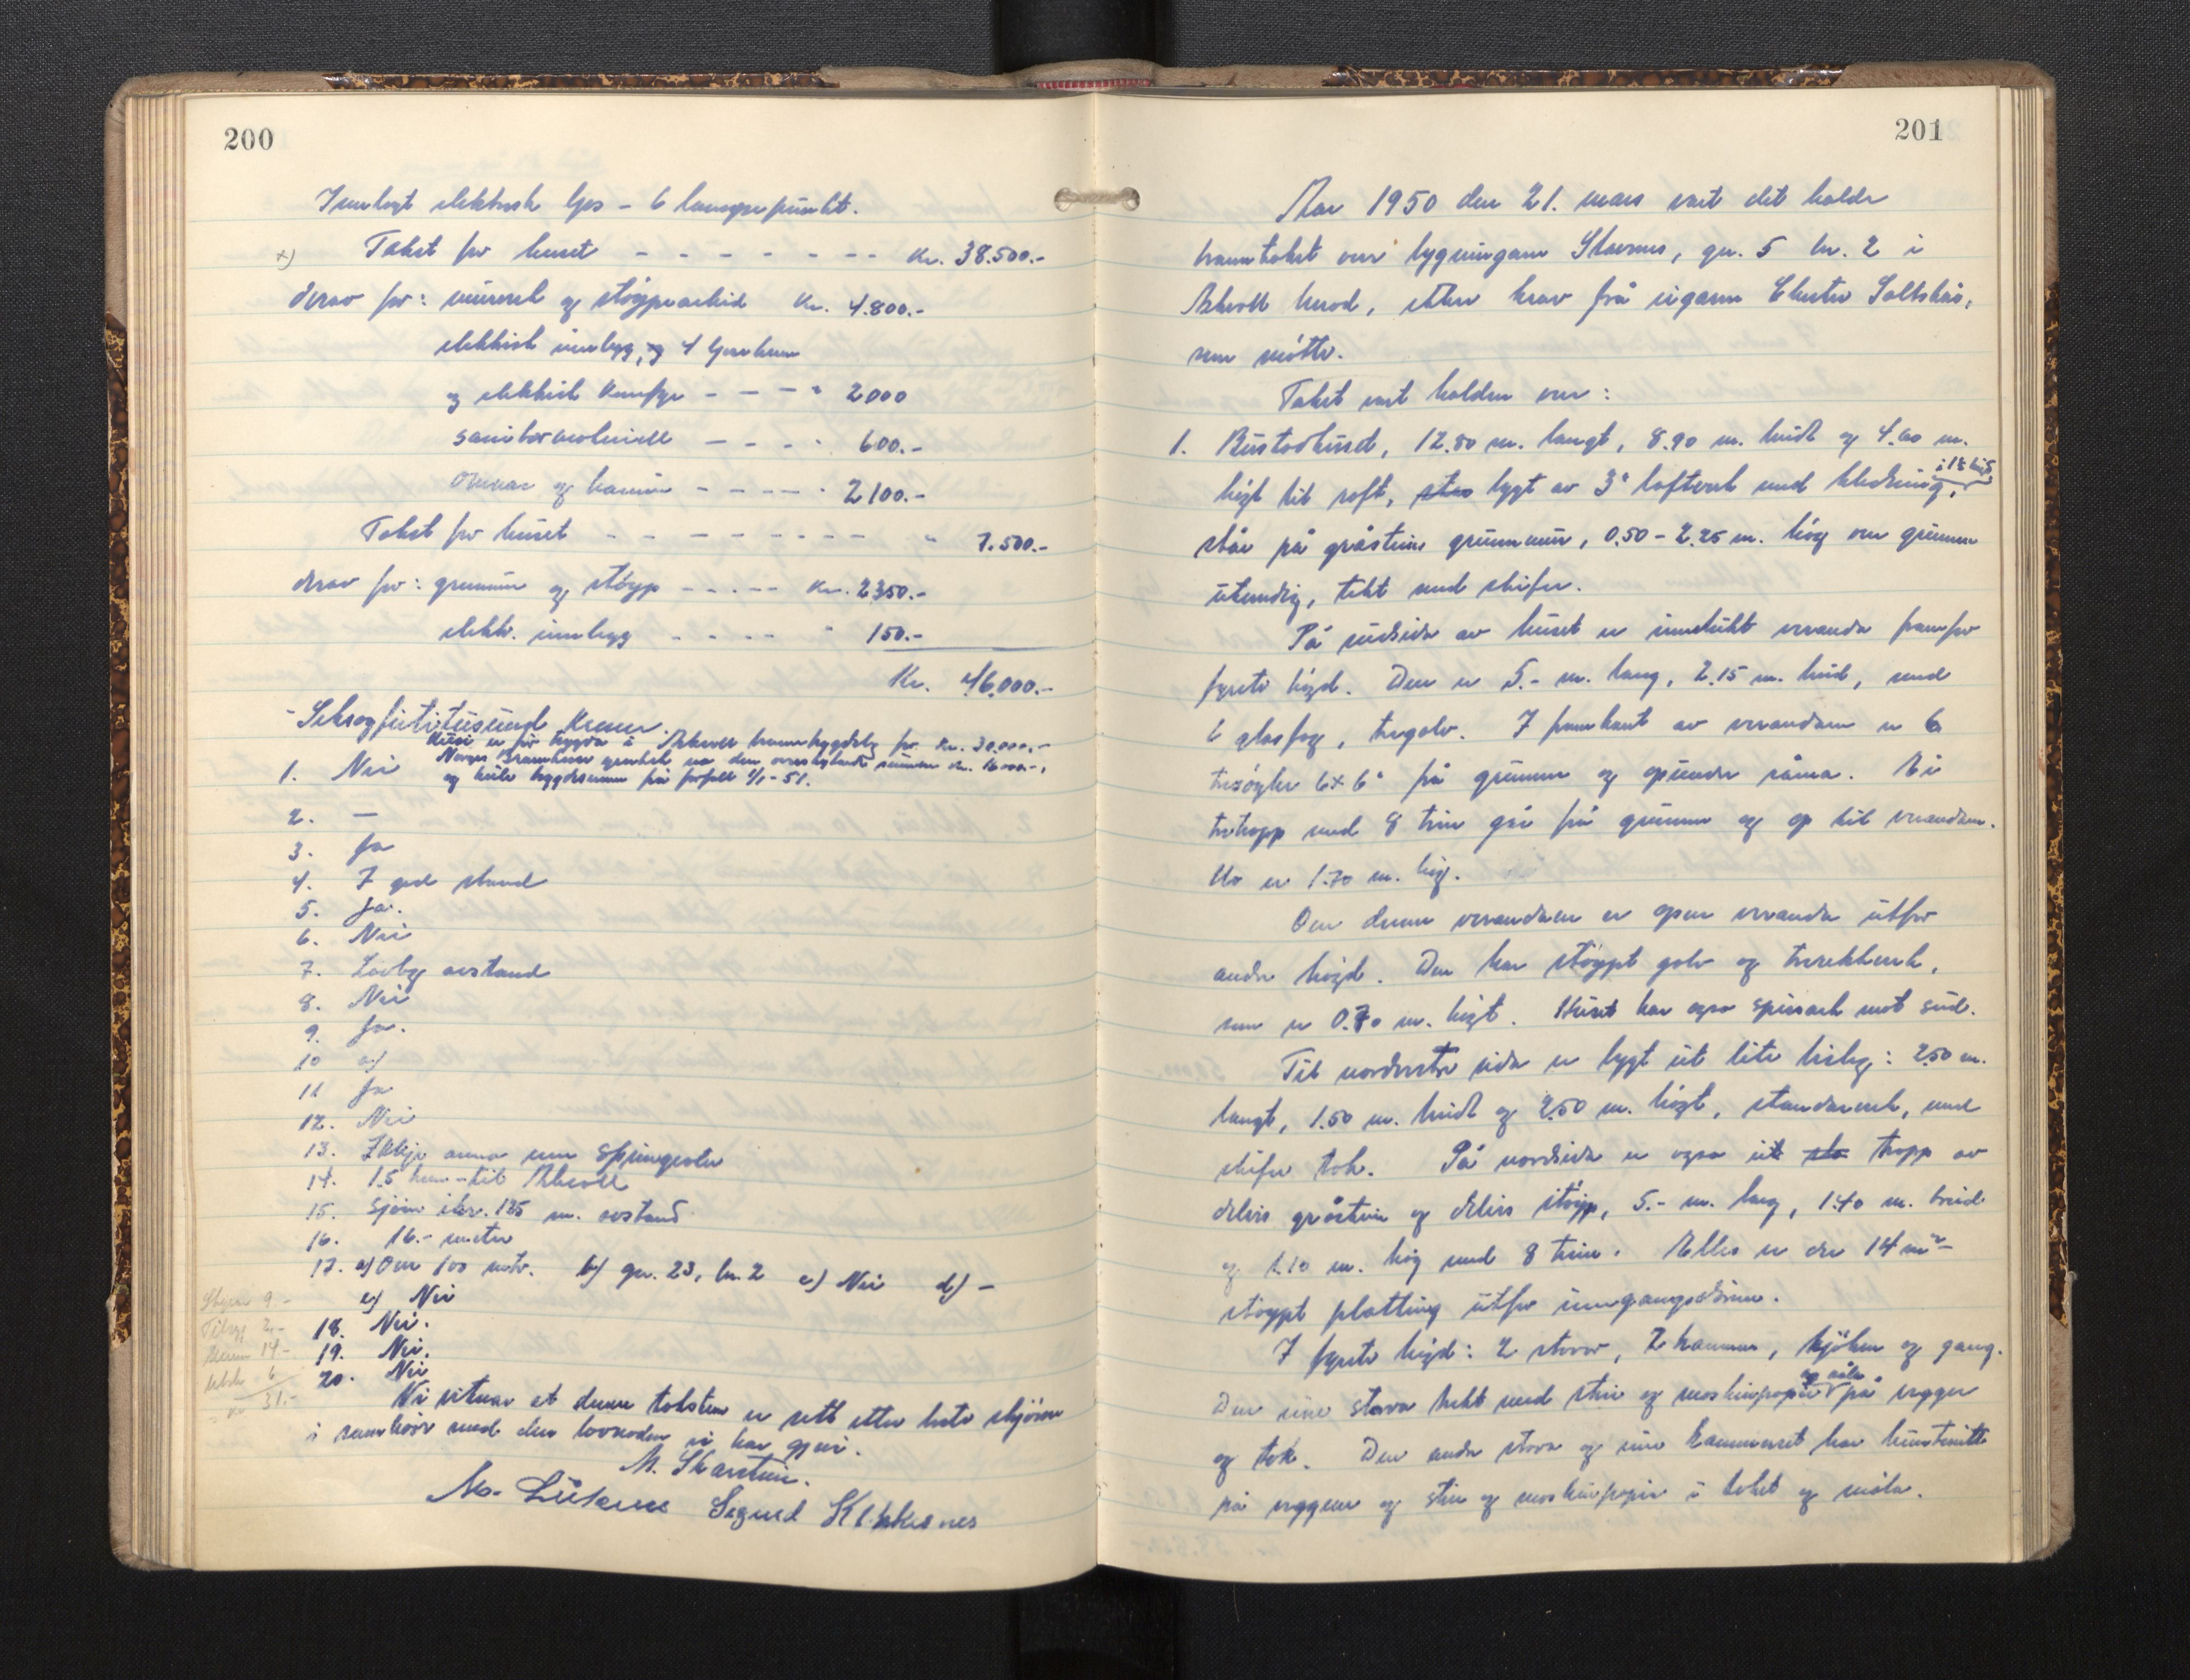 200
Innlagt elektrisk ljos - 6 lampepunkt.
x) Takst for huset - - - - - - - - kr. 38.500.-
derav for: murverk og støypearbeid kr. 4.800.-
elektrisk innlegg, og 4
og elektrisk komfyr - - - " 2000
sanitærmateriell - - - " 600.-
omnar og kamin - - - - " 2100.-
Takst for huset - - - - - - - - " 7.500.-
derav for: grunnmur og støyp - - - - - kr. 2350.-
elektr. innlegg - - - - " 150.-
Kr. 46.000.-
- Seksogførtitusund kroner.
Huset er før trygda i Askvoll branntrygdelag for kr. 30.000.-
Norges Brannkasse den overskytande summen kr. 16000.-,
og heile trygdesummen frå forfall 1/1-51.
1. Nei
2. —
3. Ja
4. I god stand
5. Ja.
6. Nei
7. Lovleg avstand
8. Nei
9. Ja.
10 a)
11 Ja
12. Nei
13. Ikkje anna enn springvatn
14. 1.5 km - til Askvoll
15. Sjøen ikr. 125 m. avstand
16. 16.- meter
17. a) Over 100 mtr. b) gn. 23, bn. 2 c) Nei d) —
e) Nei
18. Nei.
19. Nei.
20. Nei
Skyss 9.-
Tilsyn 2.-
14.-
6
kr 31.-
Vi vitnar at denne taksten er sett etter beste skjønn
i samhøve med den lovnaden vi har gjeve.
M. Skarstein.
Sigurd Klokkernes
201
Aar 1950 den 21. mars vart det halde
branntakst over bygningane Stavnes, gn. 5 bn. 2 i
Askvoll herad, etter krav frå eigaren Saltskår,
som møtte.
Takst vart halden over:
1. Bustadhuset, 12.80 m. langt, 8.90 m. breidt og 4.60 m.
høgt til raft, bygt av 3" lafteverk med kledning,
står på gråsteins grunnmur, 0.50 - 2.25 m. høg over grunnen
utvendig, tekt med skifer.
På sudsida av huset er innelukt veranda framfor
fyrste høgd. Den er 5.- m. lang, 2.15 m. breid, med
6 glasfag, tregolv. I framkant av verandaen er 6
tresøyler 6 x 6" frå grunnen og op under råma. Ei
tretrapp med 8 trin går frå grunnen og op til verandaen.
Ho er 1.70 m. høg.
Over denne verandaen er open veranda utfor
andre høgd. Den har støypt golv og trerekkverk,
som er 0.70 m. høgt. Huset har ogso spissark mot sud.
Til nordvestre sida er bygt ut lite bislag: 2.50 m.
langt, 1.50 m. breidt og 2.50 m. høgt, standarverk, med
skifer tak. På nordsida er ogso ut sta trapp av
delvis gråstein og delvis støyp, 5.- m. lang, 1.40 m. breid
og 1.10 m. høg med 8 trin. Elles er der 14 m²
støypt platting utfor inngangsdørene.
I fyrste høgd: 2 stover, 2 kammer, kjøken og gang.
Den eine stova trekt med strie og maskinpapir og måla på vegger
og tak. Den andre stova og eine kammerset har
på veggene og strie og maskinpapir i taket og måla.